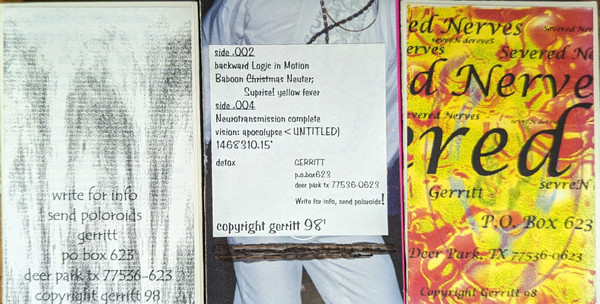 write for info
send poloroids
gerritt
po box 623
deer park tx 77536-623
copyright gerritt 98
side .002
backward Logic in Motion
Baboon Christmas Neuter;
Suprise! yellow fever
side .004
Neurotransmission complete
vision: apocalypse < UNTITLED)
1468310.15"
detox
GERRITT
p.o.box623
deer park tx 77536-0623
Write for info, send poloroids!
copyright gerritt 98'
ed Nerves
Severed Nerves
sevreN dereveS
erves
Severed N
d Nerve
Severed Nerves
ered
sevreN
Gerritt
P.O. Box 623
Deer Park, TX 77536-0623
Copyright Gerritt 98